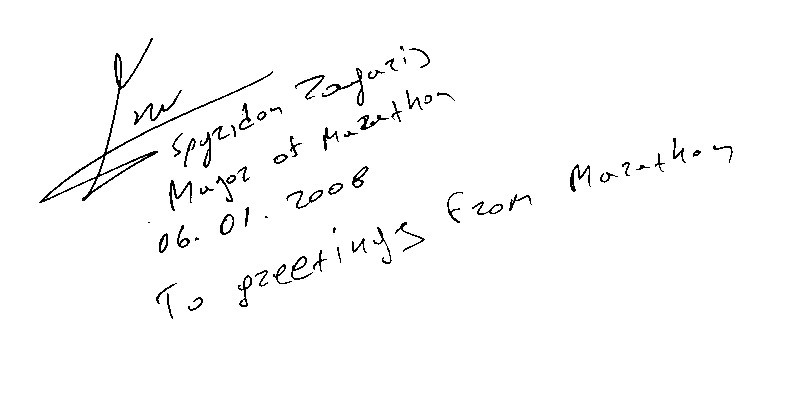 Spyridon Zagaris
Mayor of Marathon
06.01.2008
To greetings from Marathon